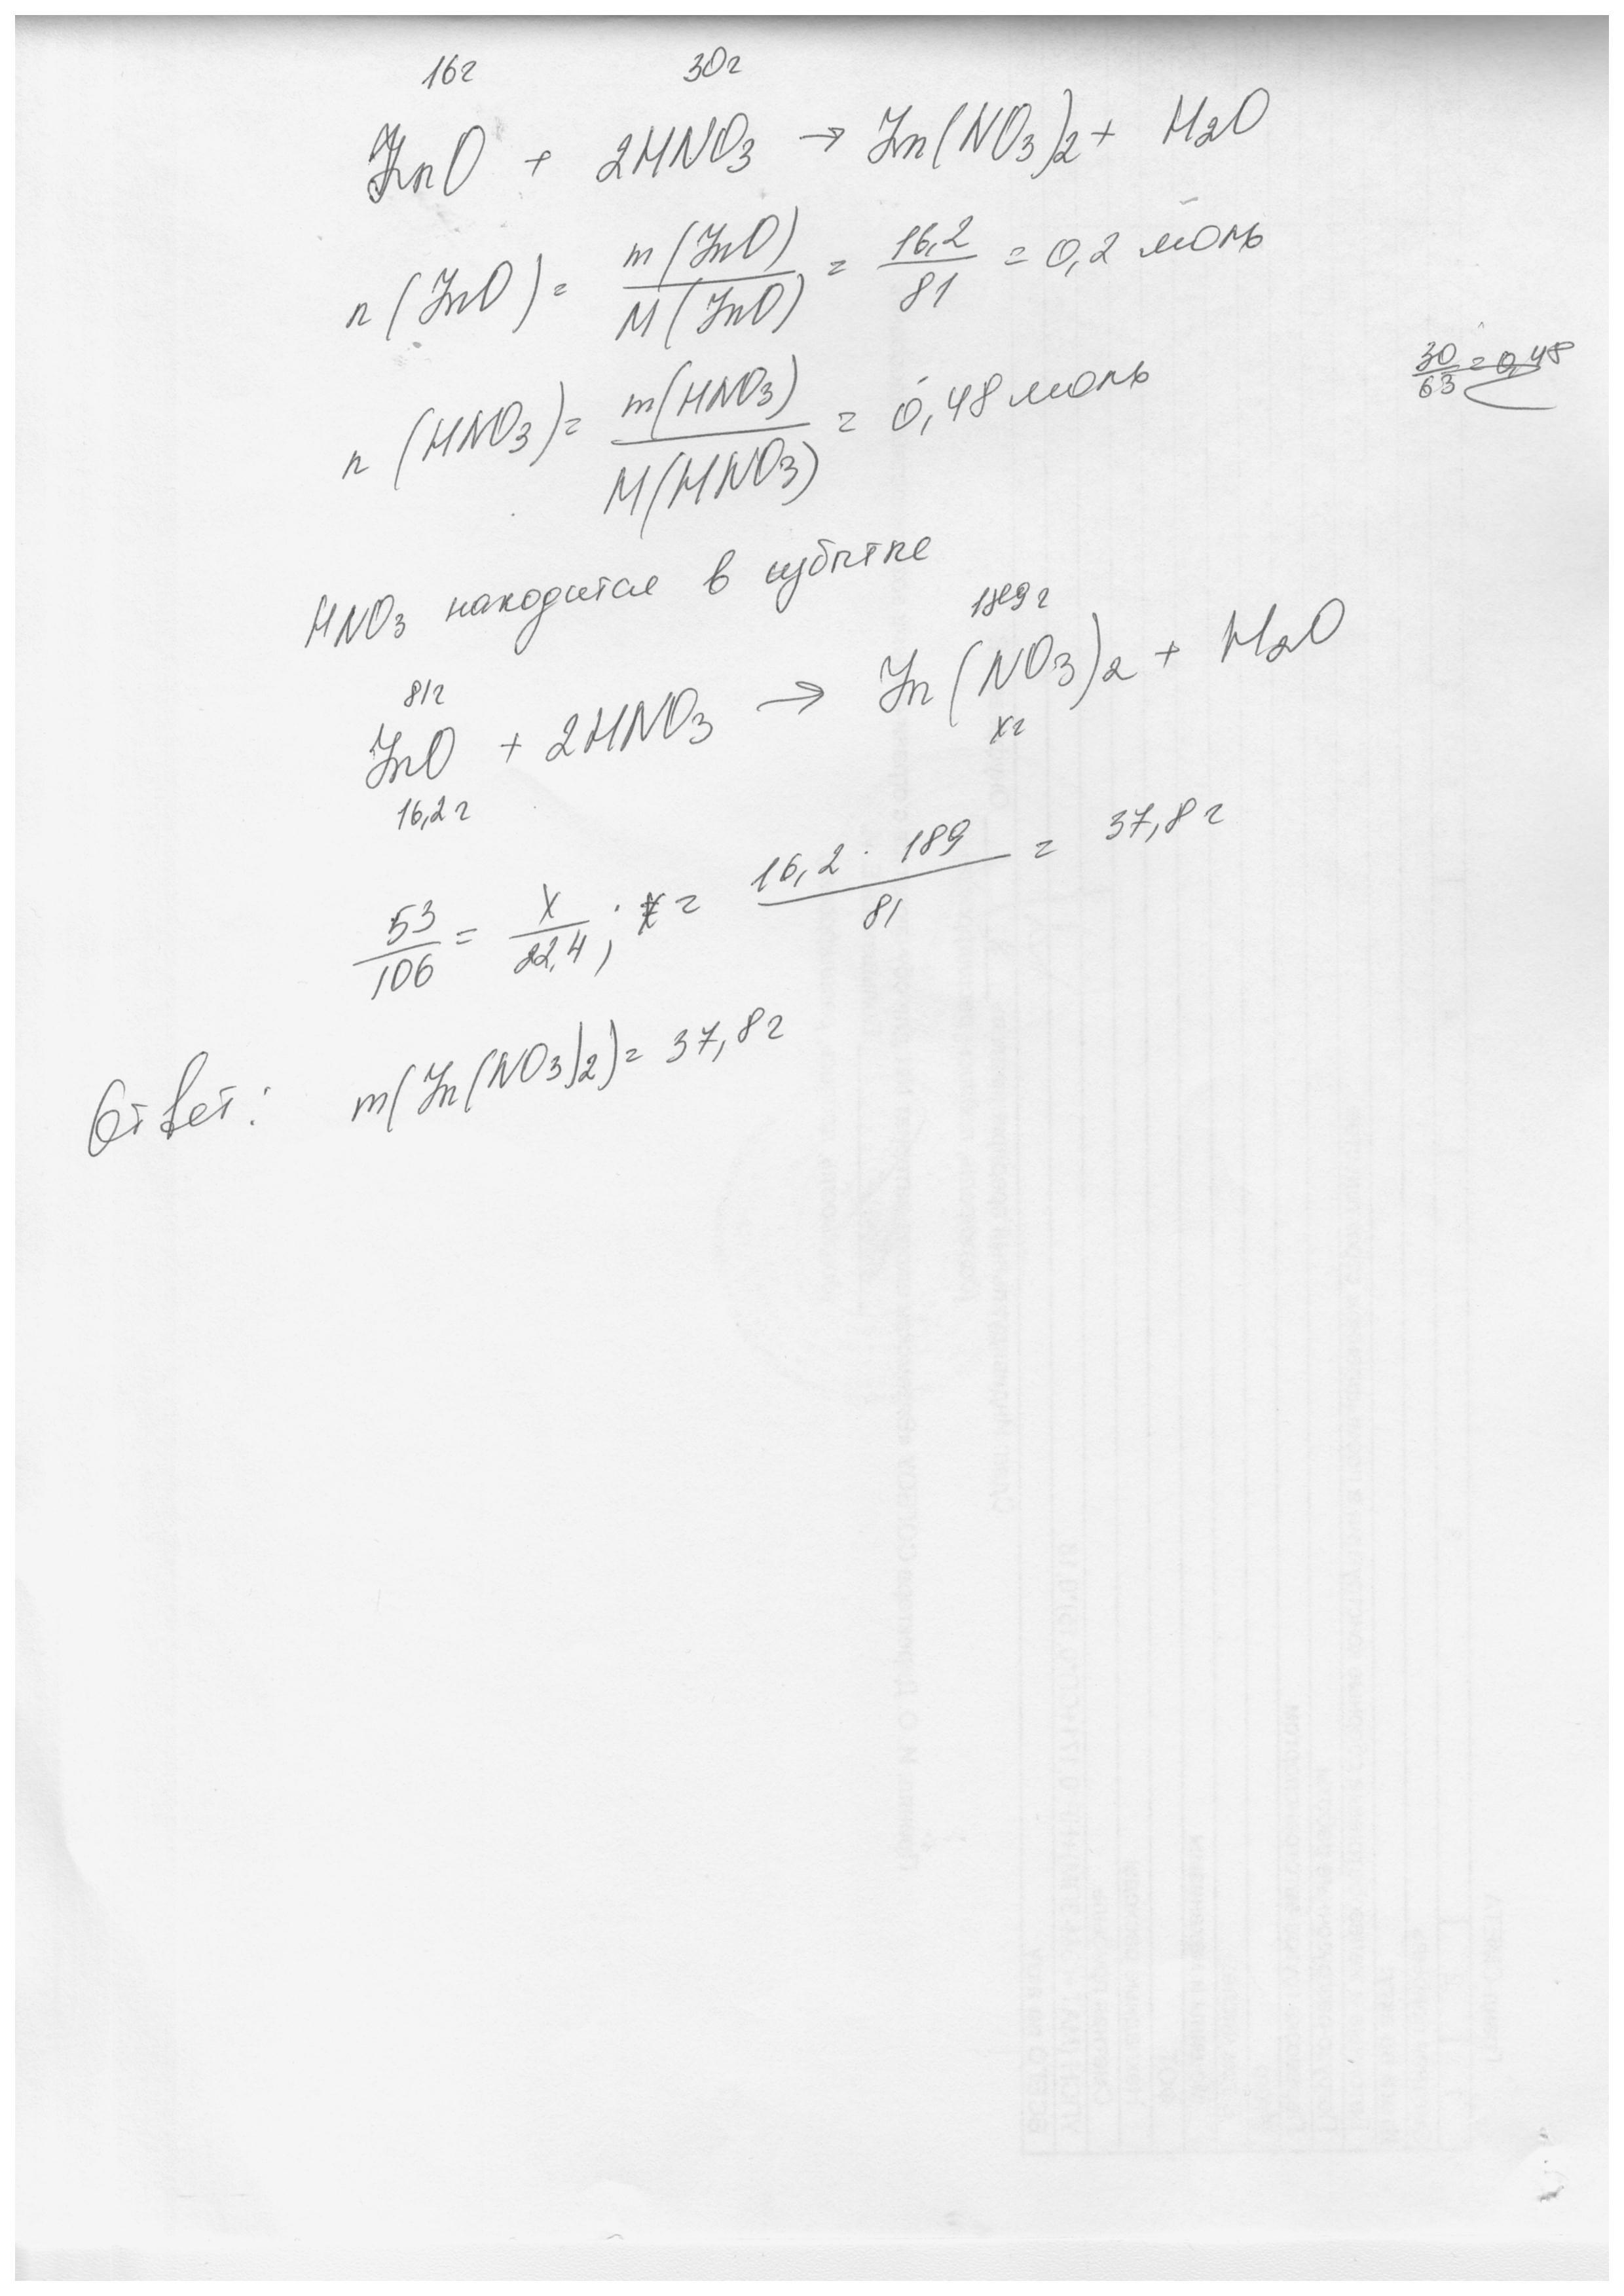 16г 30г
ZnO + 2HNO3 → Zn(NO3)2 + H2O
n(ZnO) = m(ZnO)/M(ZnO) = 16,2/81 = 0,2 моль
30/63 = 0,48
n(HNO3) = m(HNO3)/M(HNO3) = 0,48 моль
HNO3 находится в избытке
81г 189г
ZnO + 2HNO3 → Zn(NO3)2 + H2O
16,2г xг
53/106 = x/22,4; x = 16,2 · 189/81 = 37,8г
Ответ: m(Zn(NO3)2) = 37,8г